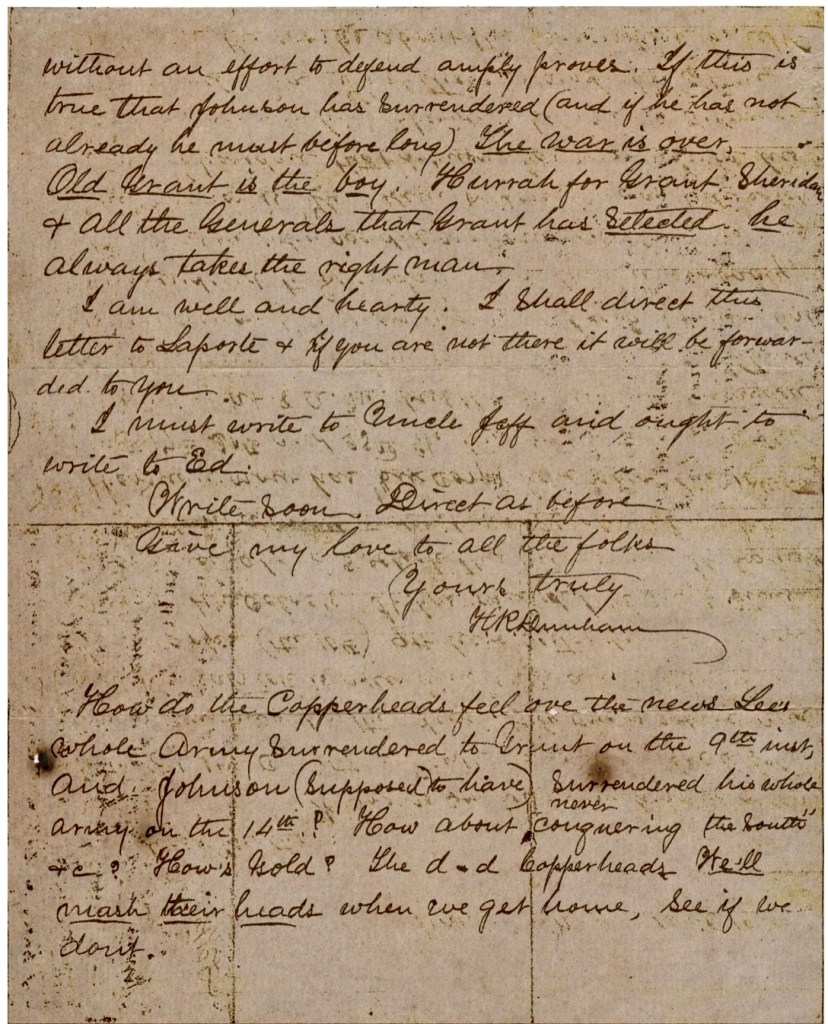 without an effort to defend amply proves. If this is
true that Johnson has surrendered (and if he has not
already he must before long) The war is over.
Old Grant is the boy. Hurrah for Grant, Sheridan
& all the Generals that Grant has selected. he
always takes the right man.
I am well and hearty. I shall direct this
letter to Laporte & if you are not there it will be forwar-
ded to you.
I must write to Uncle Jeff and ought to
write to Ed.
Write soon. Direct as before
Give my love to all the folks
Yours truly
H.K. Dunham
How do the Copperheads feel ove the news Lee's
whole Army surrendered to Grant on the 9th inst,
and Johnson (supposed to have) surrendered his whole
army on the 14th? How about never conquering the South"
&c? How's Gold? The d-d Copperheads We'll
mash their heads when we get home, see if we
dont.